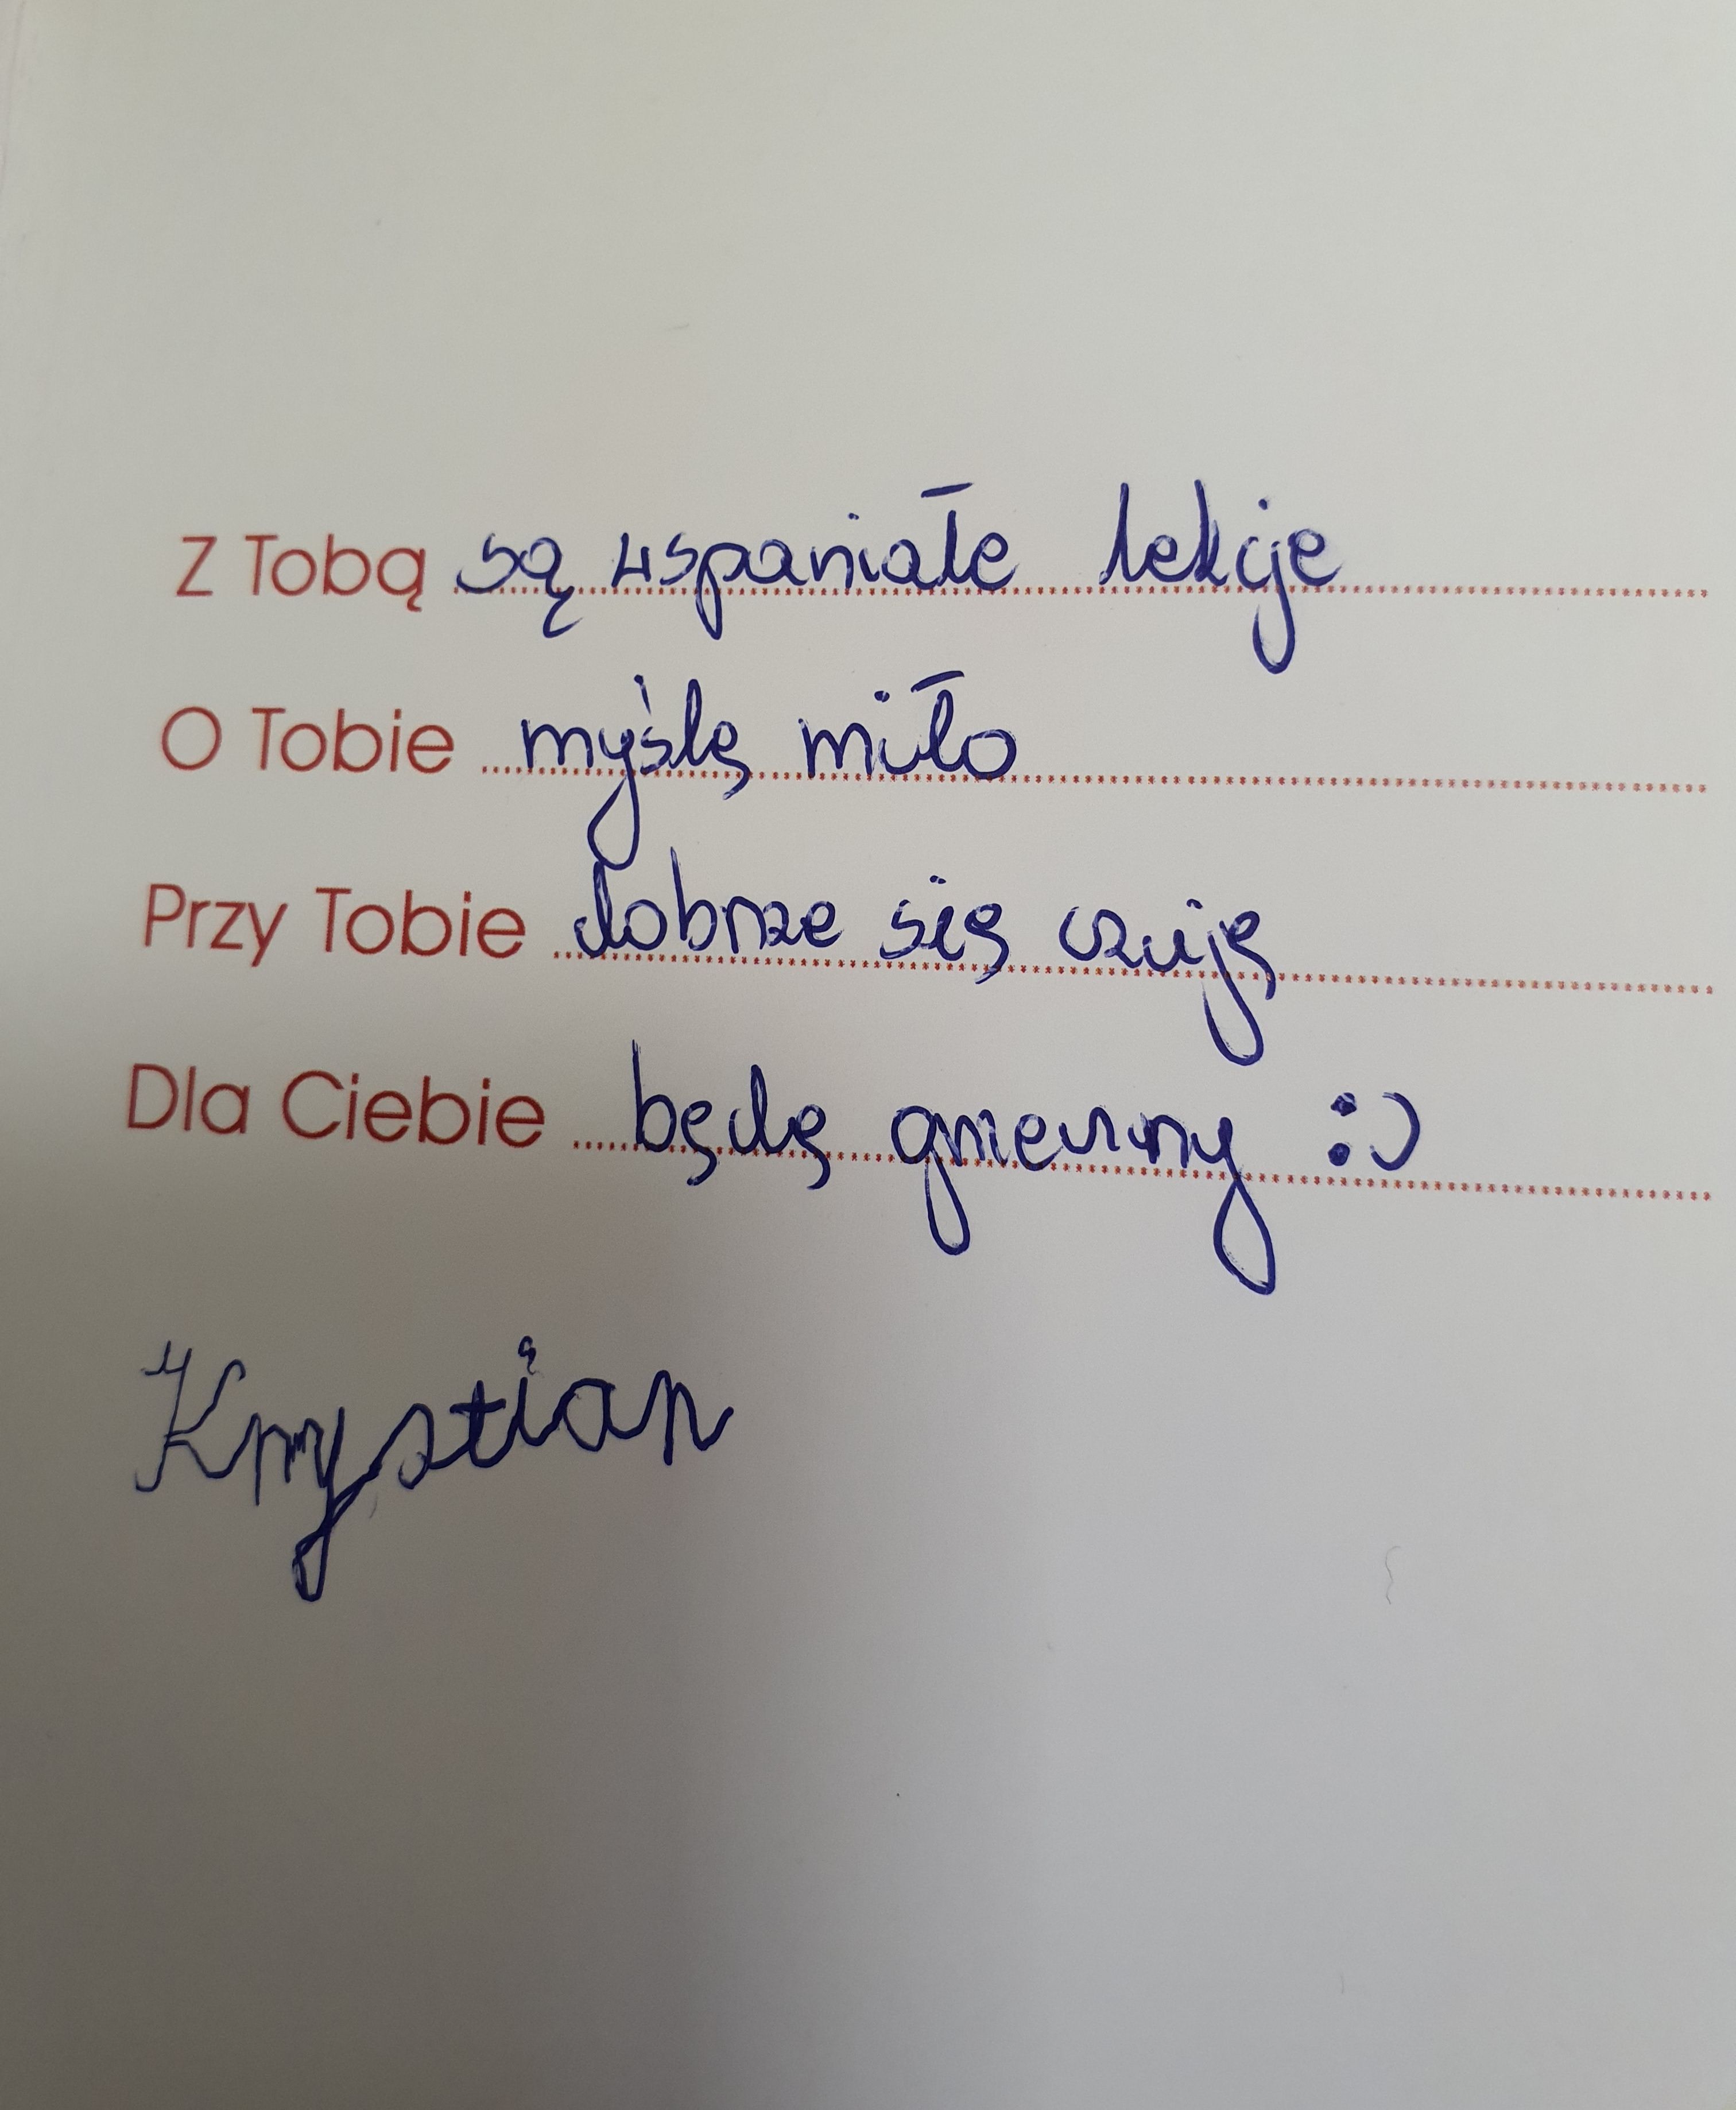 Z Tobą są wspaniałe lekcje
O Tobie myślę miło
Przy Tobie dobrze się czuję
Dla Ciebie będę grzeczny :)
Krystian